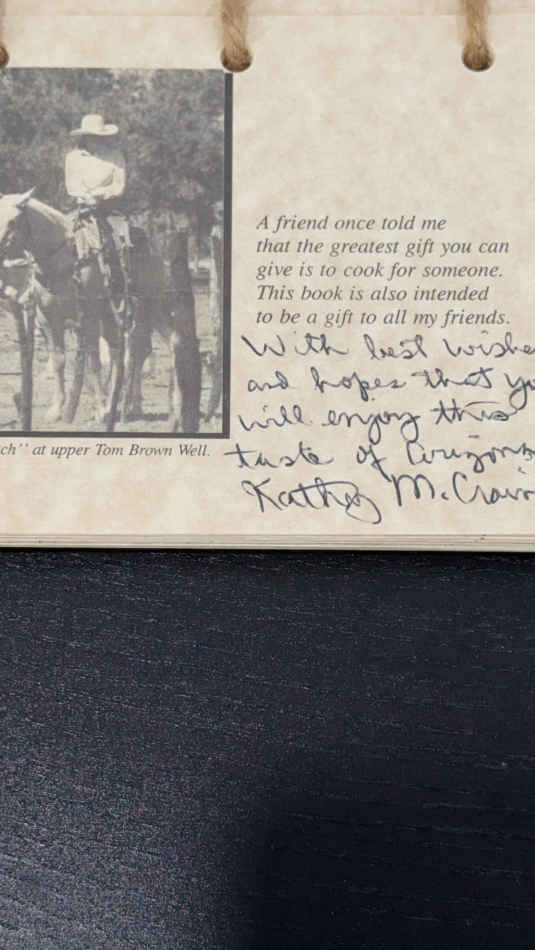 A friend once told me
that the greatest gift you can
give is to cook for someone.
This book is also intended
to be a gift to all my friends.
With best wishe
and hopes that yo
will enjoy this
taste of Arizona
Kathy McCrain
ch" at upper Tom Brown Well.